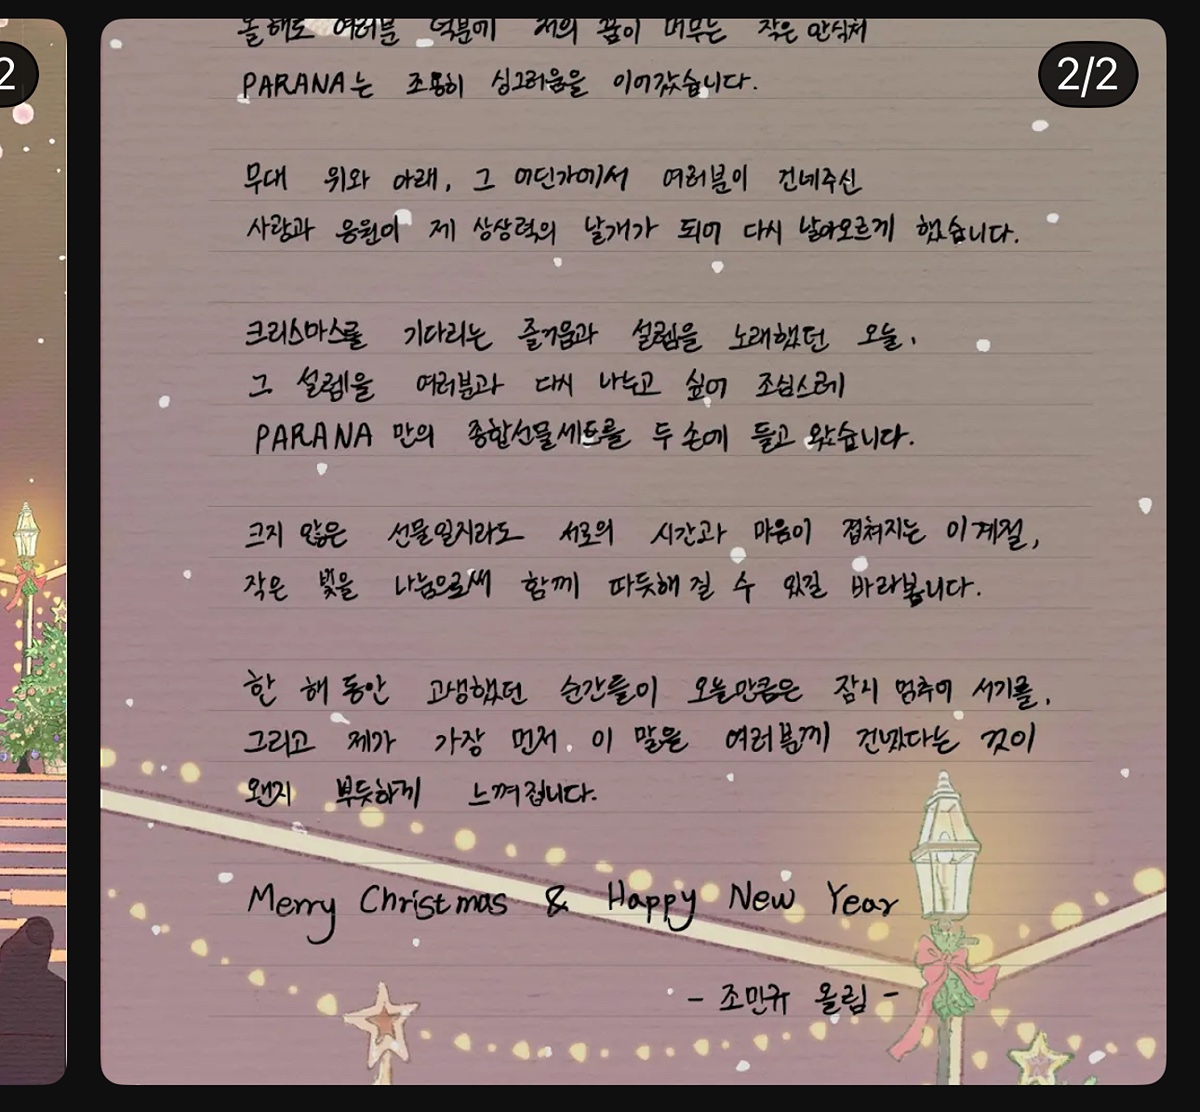 2
2/2
올해도 여러분 덕분에 저의 꿈이 머무는 작은 안식처
PARANA는 조용히 싱그러움을 이어갔습니다.
무대 위와 아래, 그 어딘가에서 여러분이 건네주신
사랑과 응원이 제 상상력의 날개가 되어 다시 날아오르게 했습니다.
크리스마스를 기다리는 즐거움과 설렘을 노래했던 오늘,
그 설렘을 여러분과 다시 나누고 싶어 조심스레
PARANA 만의 종합선물세트를 두 손에 들고 왔습니다.
크지 않은 선물일지라도 서로의 시간과 마음이 겹쳐지는 이 계절,
작은 빛을 나눔으로써 함께 따듯해 질 수 있길 바라봅니다.
한 해 동안 고생했던 순간들이 오늘만큼은 잠시 멈추어 서기를,
그리고 제가 가장 먼저, 이 말을 여러분께 건넸다는 것이
왠지 뿌듯하게 느껴집니다.
Merry Christmas & Happy New Year
- 조민규 올림 -